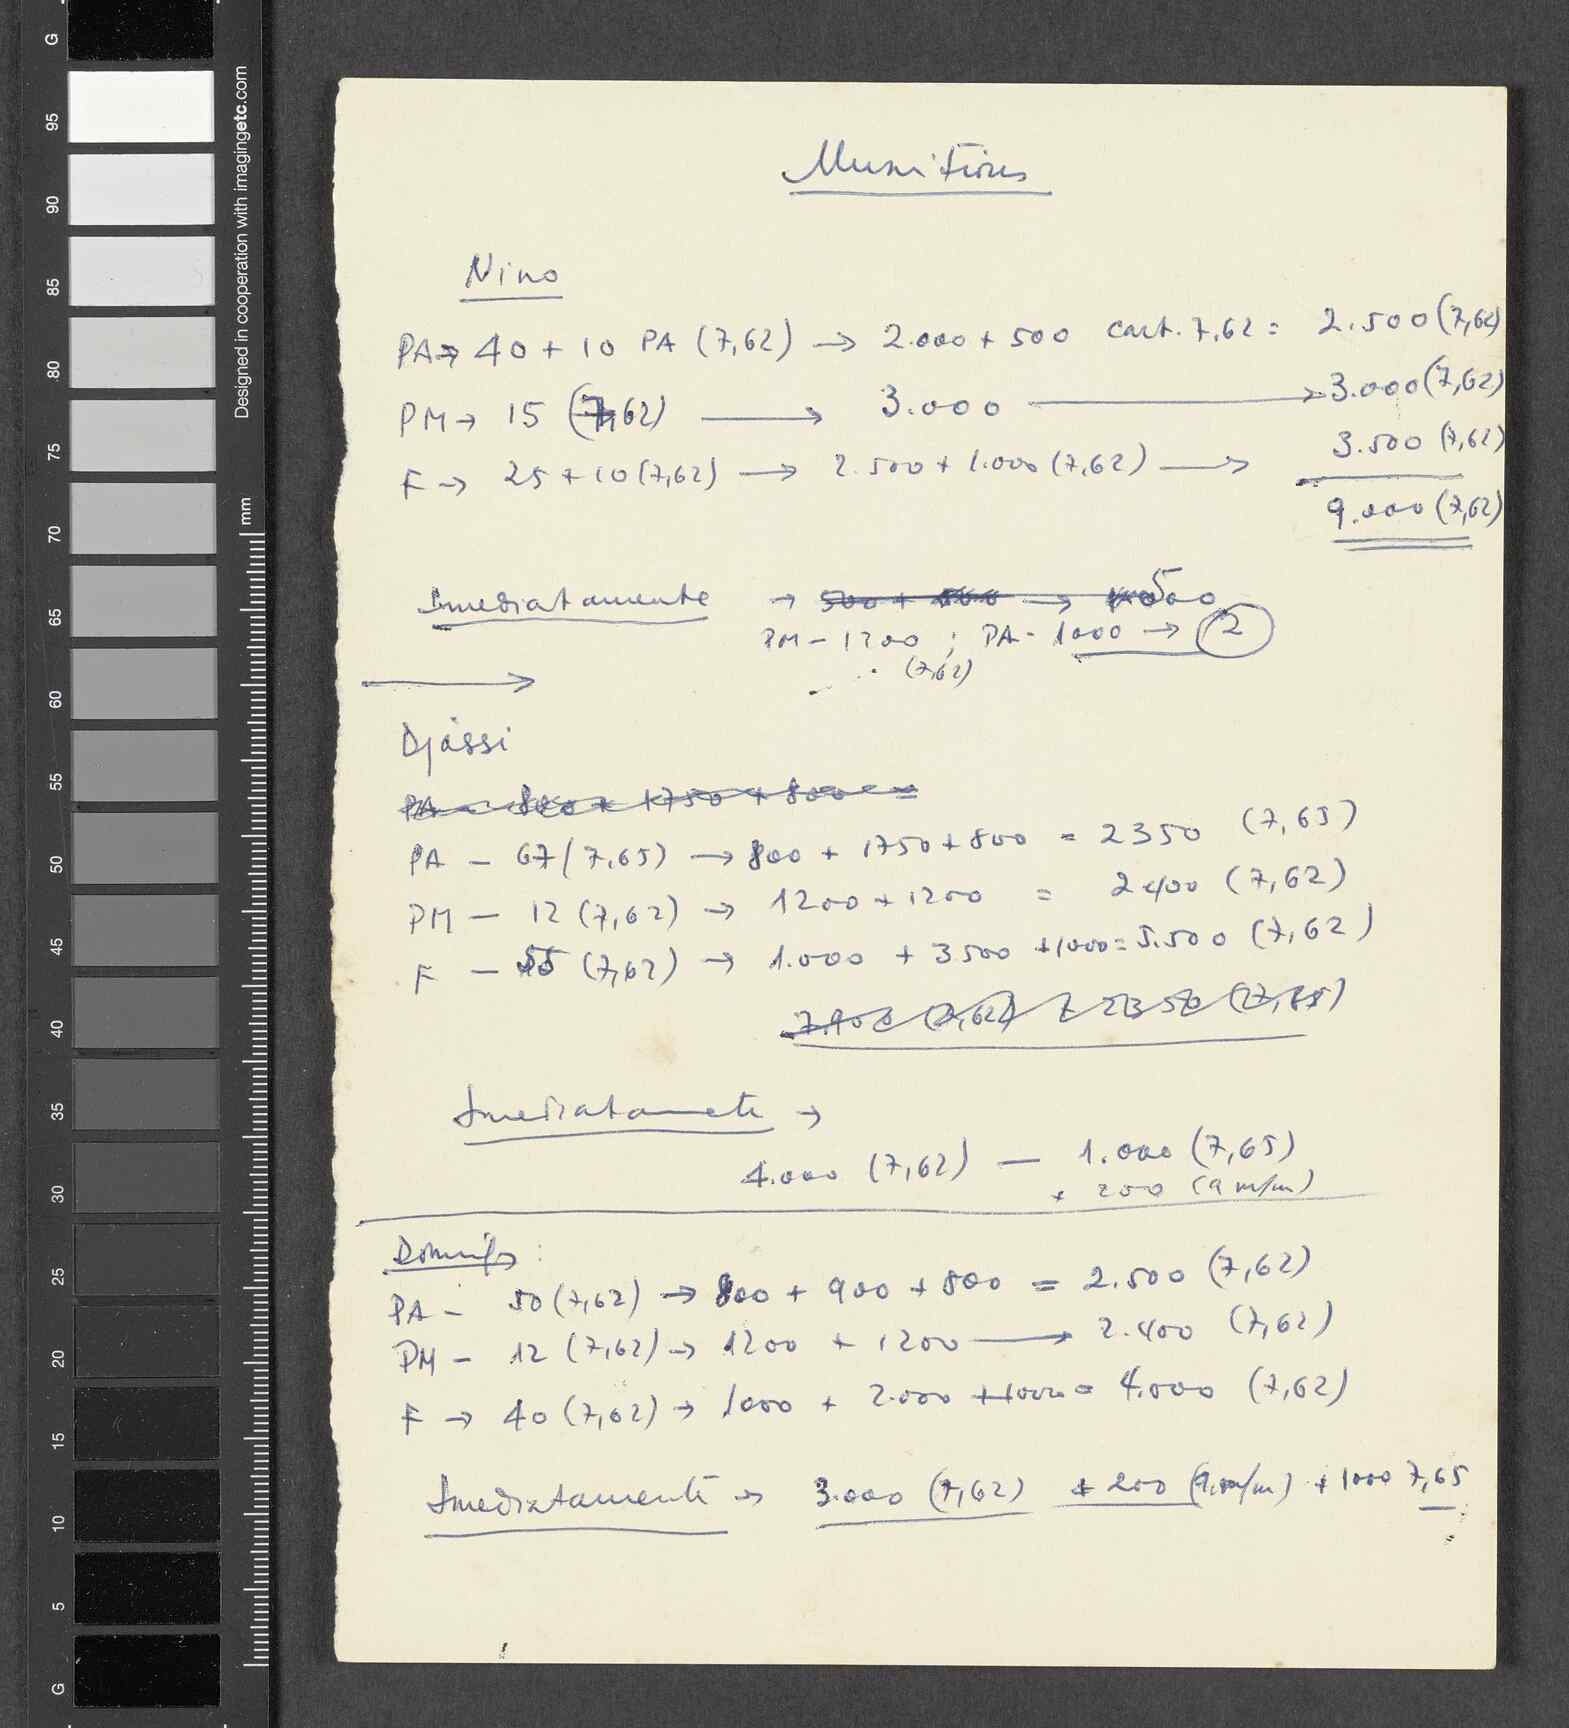 Munitions
Nino
PA → 40 + 10 PA (7,62) → 2.000 + 500 cart. 7,62 = 2.500 (7,62)
PM → 15 (7,62) → 3.000 → 3.000 (7,62)
F → 25 + 10 (7,62) → 2.500 + 1.000 (7,62) → 3.500 (7,62)
9.000 (7,62)
Imediatamente → 500 + → 5000
PM - 1200 ; PA - 1000 → 2
(7,62)
→
Djassi
PA - 800 + 1750 + 800 =
PA - 67 (7,65) → 800 + 1750 + 800 = 2350 (7,65)
PM - 12 (7,62) → 1200 + 1200 = 2400 (7,62)
F - 55 (7,62) → 1.000 + 3.500 + 1000 = 5.500 (7,62)
7.900 (7,62) 2350 (7,65)
Imediatamente →
4.000 (7,62) — 1.000 (7,65)
+ 200 (9 m/m)
Domingos :
PA - 50 (7,62) → 800 + 900 + 800 = 2.500 (7,62)
PM - 12 (7,62) → 1200 + 1200 → 2.400 (7,62)
F → 40 (7,62) → 1000 + 2.000 + 1000 = 4.000 (7,62)
Imediatamente → 3.000 (7,62) + 200 (9 m/m) + 1000 7,65
Designed in cooperation with imagingetc.com
mm
G
95
90
85
80
75
70
65
60
55
50
45
40
35
30
25
20
15
10
5
G